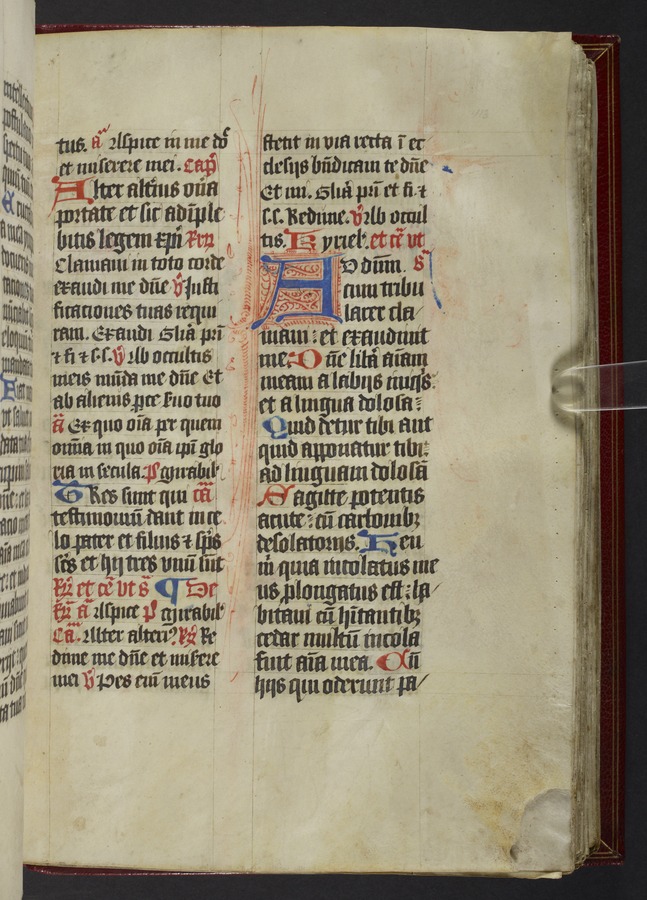 tus. a̅ Aspice in me do̅
et miserere mei. Cap̅
Alter alt̅ius on̅a
portate et sic adi̅ple
bitis legem xp̅i R̅n̅
Clamaui in toto corde
exaudi me dn̅e v̅ Iusti
ficationes tuas requi
ram. Exaudi Glia̅ pri̅
⁊ fi ⁊ s.s. v̅ Ab occultis
meis mu̅da me dn̅e Et
ab alienis p̱ce s̓uo tuo
a̅ Ex quo oi̅a per quem
omnia in quo oi̅a ip̅i glo
ria in secula. p̅s̅ Mirabil̓
Tres sunt qui ca̅
testimoniu̅ dant in ce
lo pater et filius ⁊ sp̅s
sc̅s et hij tres vnu̅ su̅t
R̅n̅ et ce̅ vt s̅ ¶ De
a̅ Aspice p̅ Mirabil̓
Ca̅. Alter alteri⁹ R̅ Re
dime me dn̅e et misere
mei v̅ Pes eni̅ meus
stetit in via recta i̅ ec
clesijs bn̅dicam te dn̅e
Et im. Glia̅ pri̅ et fi ⁊
s.s. Redime. v̅ Ab occul
tis. Kyriel̓. et ce̅ vt
AD dn̅m. s̅
cum tribu
larer cla
maui: et exaudiuit
me: Dn̅e lib̅a ai̅am
meam a labijs iniq̓s:
et a lingua dolosa:
Quid detur tibi aut
quid apponatur tibi:
ad linguam dolosa̅
Sagitte potentis
acute: cu̅ carbonibꝫ
desolatorijs. Heu
m̅ quia incolatus me
us plongatus est: ha
bitaui cu̅ hi̅tantibꝫ
cedar multu̅ incola
fuit ai̅a mea. Cu̅
hijs qui oderunt pa